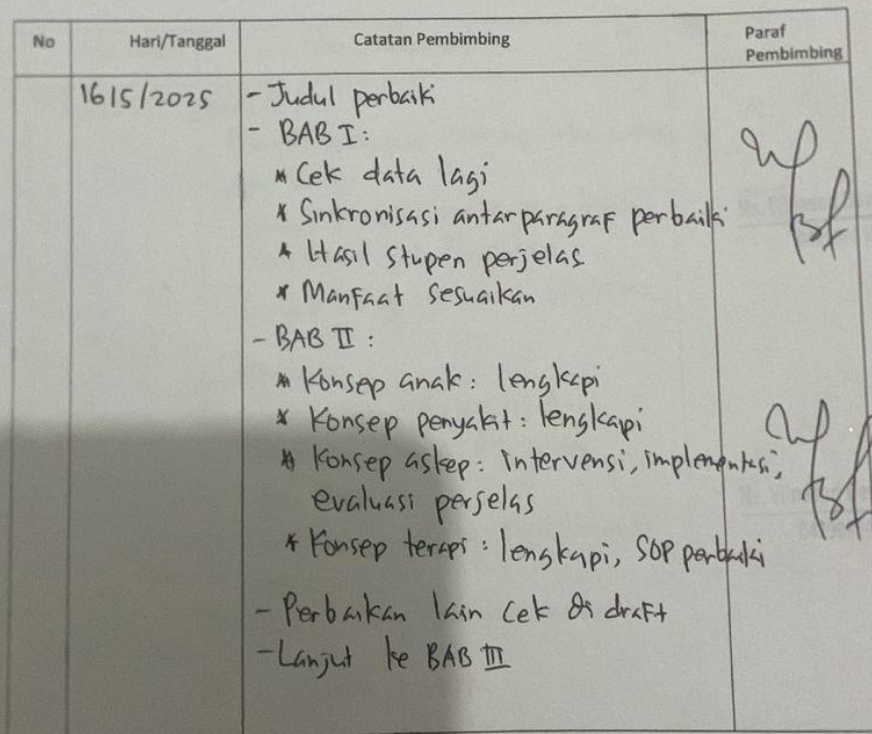 No Hari/Tanggal Catatan Pembimbing Paraf Pembimbing
16/5/2025 - Judul perbaiki
- BAB I:
* Cek data lagi
* Sinkronisasi antar paragraf perbaiki
* Hasil stupen perjelas
* Manfaat sesuaikan
- BAB II:
* Konsep anak: lengkapi
* Konsep penyakit: lengkapi
* Konsep askep: intervensi, implementasi,
evaluasi perjelas
* Konsep terapi: lengkapi, SOP perbaiki
- Perbaikan lain cek di draft
- Lanjut ke BAB III